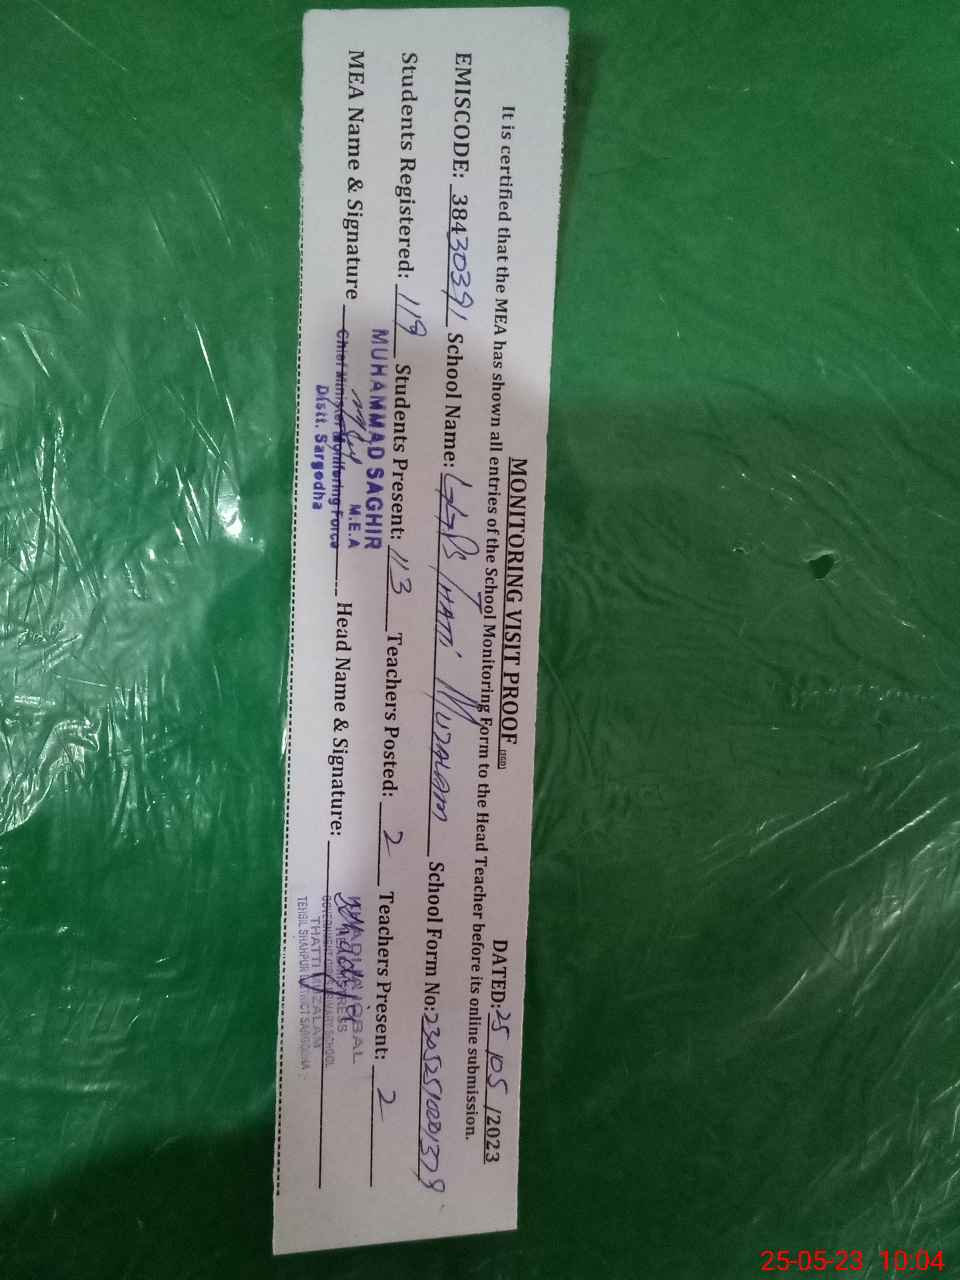 MONITORING VISIT PROOF (SGD) DATED: 25/05/2023
It is certified that the MEA has shown all entries of the School Monitoring Form to the Head Teacher before its online submission.
EMISCODE: 38430391 School Name: GGPS THATTi MUZALAM School Form No: 23052510001378
Students Registered: 119 Students Present: 113 Teachers Posted: 2 Teachers Present: 2
MEA Name & Signature Head Name & Signature:
MUHAMMAD SAGHIR
M.E.A
Chief Minister Monitoring Force
Distt. Sargodha
GOVERNMENT SCHOOL
THATTI MUZALAM
TEHSIL SHAHPUR DISTRICT SARGODHA
25-05-23 10:04